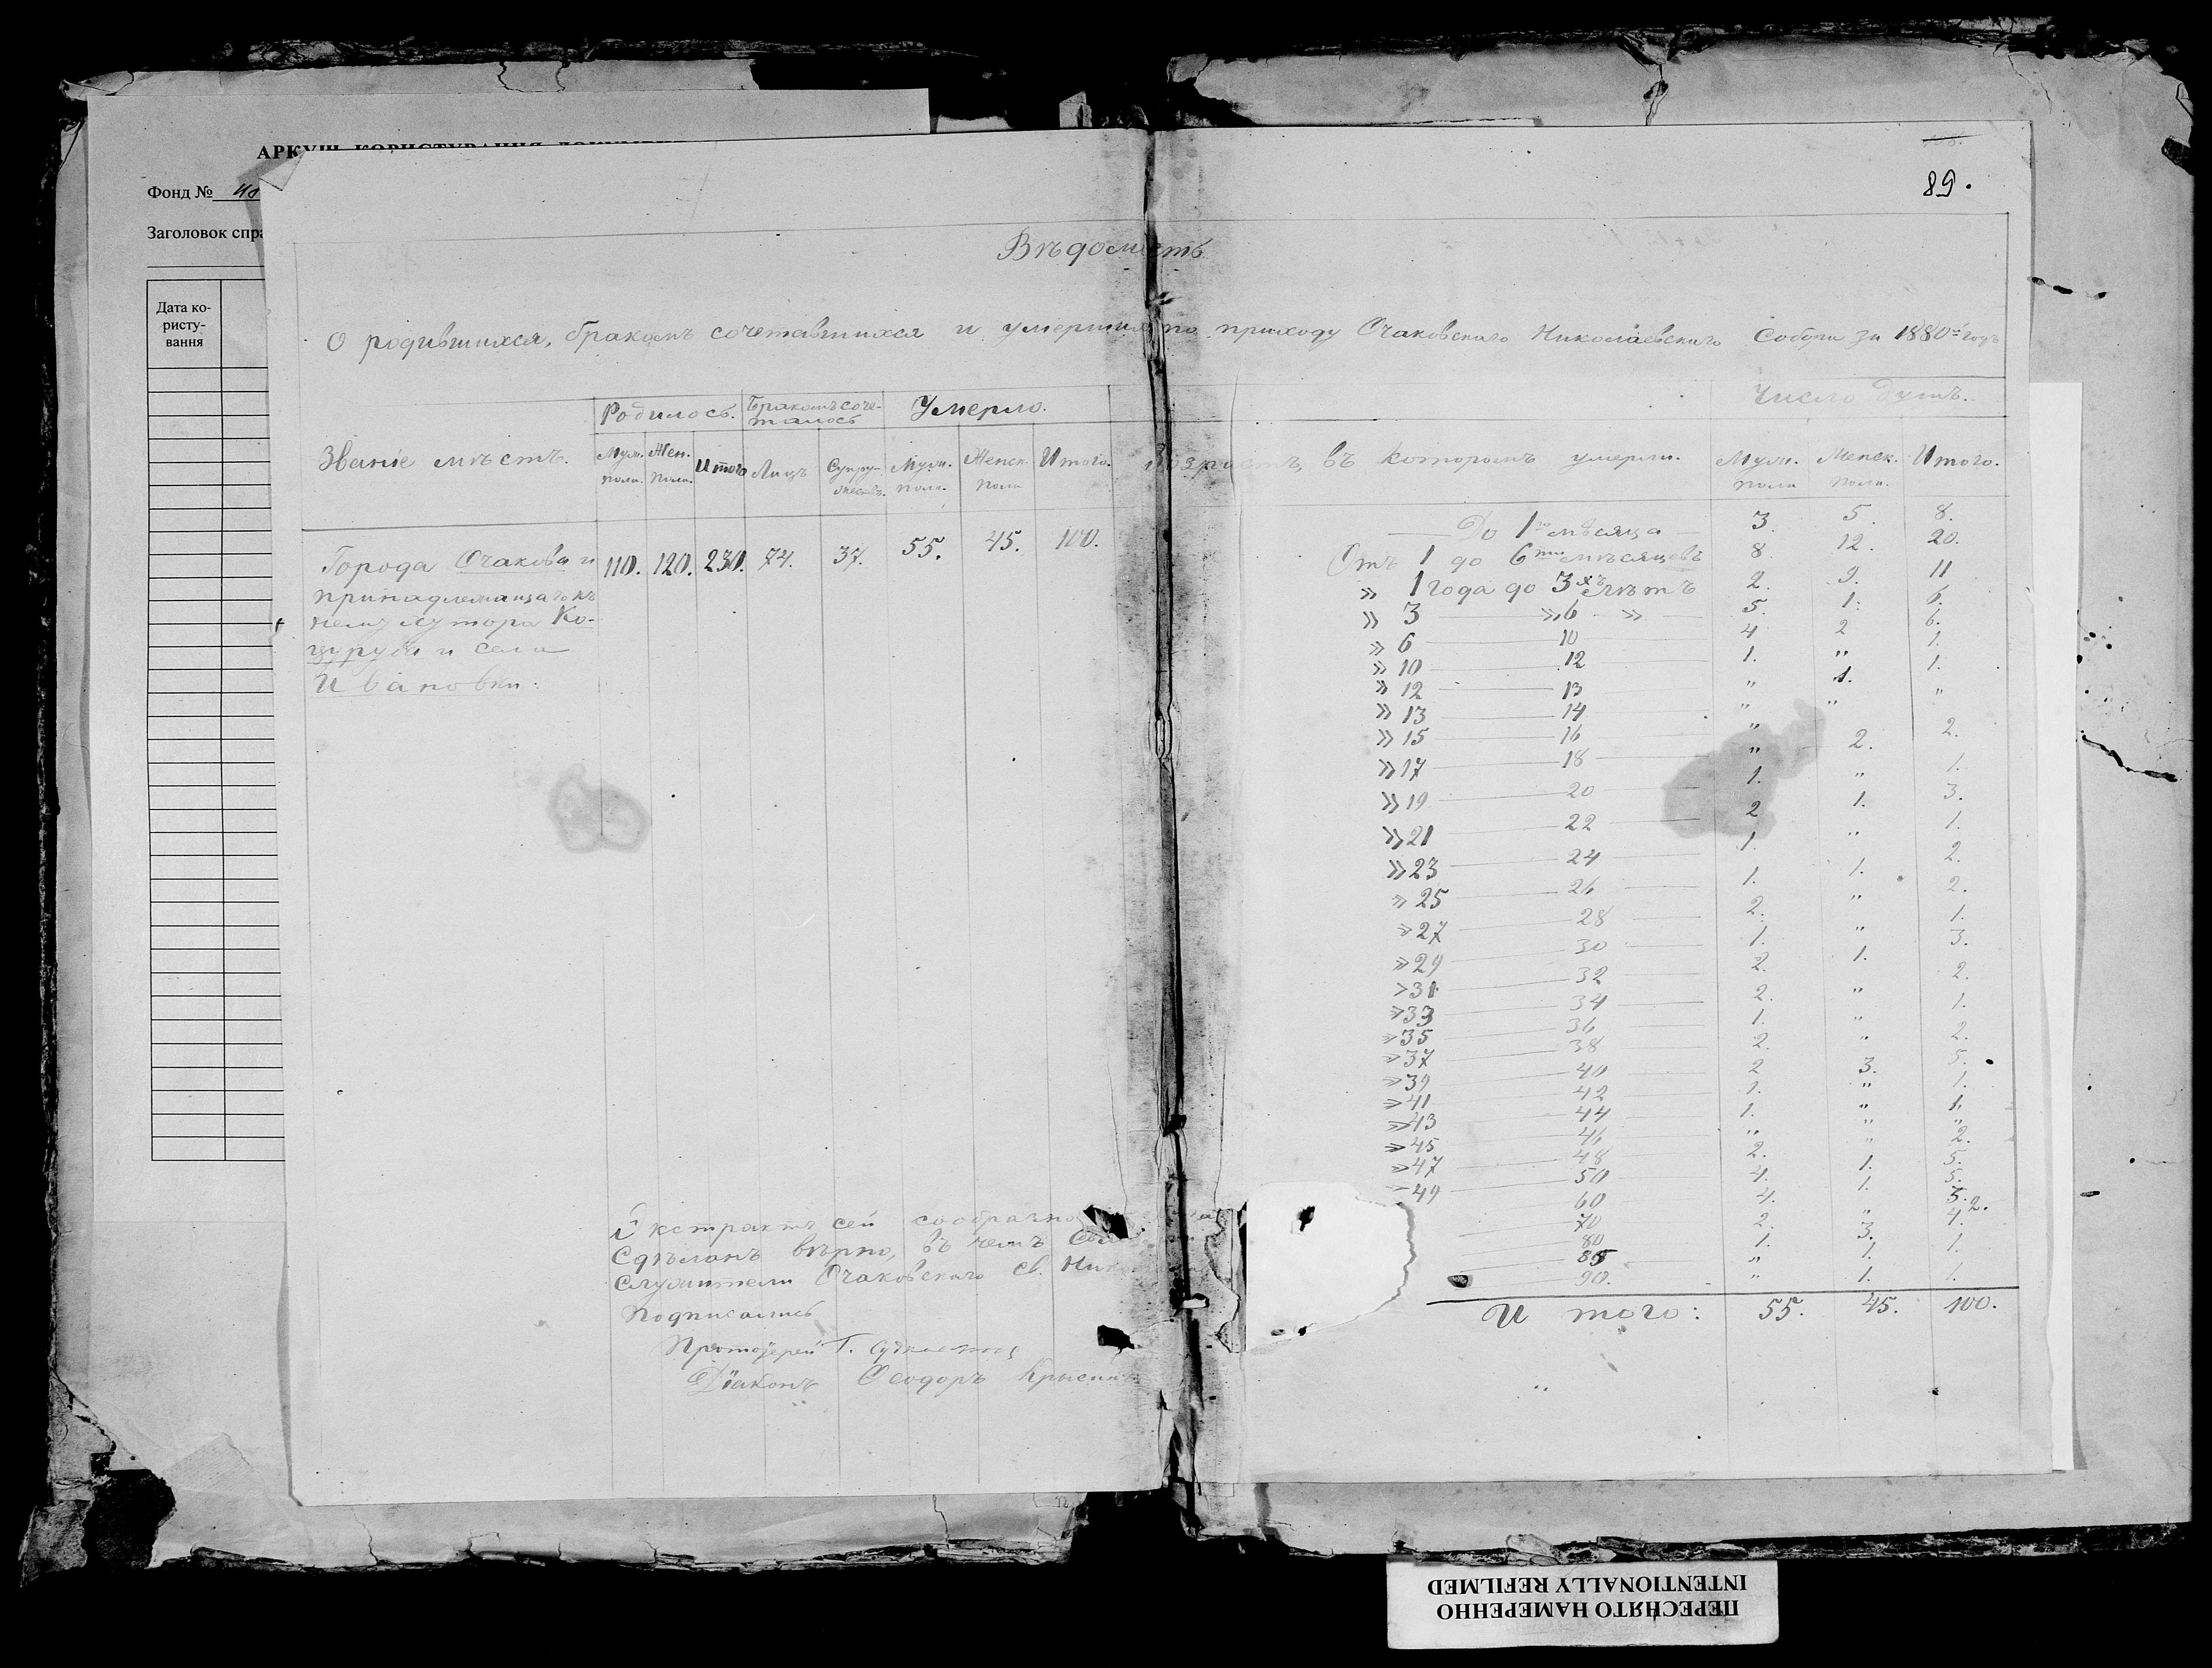 АРКУШ КОРИСТУВАННЯ
Фонд №
Заголовок спра
Дата ко-
ристу-
вання
89.
Вѣдомость
О родившихся, бракомъ сочетавшихся и умершихъ по приходу Очаковскаго Николаевскаго Собора за 1880й годъ
Званіе мѣстъ. Родилось. Бракомъ соче-
талось Умерло. Возрастъ, въ которомъ умерли. Число душъ.
Муж. пола. Жен. пола. Итого Лицъ Супру-
жествъ. Муж. пола. Женск. пола Итого. Муж. пола Женск. пола. Итого.
Города Очакова и 110. 120. 230. 74. 37. 55. 45. 100.
принадлежащаго къ
нему хутора Ко-
цуруба и села
Ивановки:
До 1го мѣсяца 3. 5. 8.
Отъ 1 до 6ти мѣсяцевъ 8. 12. 20.
» 1 года до 3хъ лѣтъ 2. 9. 11
» 3 » 6 » 5. 1. 6.
» 6 10 4 2 6.
» 10 12 1. " 1.
» 12 13 " 1. 1.
» 13 14 " " "
» 15 16 "
» 17 18 " 2. 2.
» 19 20 1. " 1.
» 21 22 2 1. 3.
» 23 24 1. " 1.
» 25 26 1. 1. 2.
» 27 28 2. " 2.
» 29 30 1. " 1.
» 31 32 2. 1. 3.
» 33 34 2. " 2.
» 35 36 1. " 1.
» 37 38 2. " 2.
» 39 40 2 3. 5.
» 41 42 1. " 1.
» 43 44 1. " 1.
» 45 46 " " "
» 47 48 2. " 2.
» 49 50 4. 1. 5.
60 4. 1. 5.
70 2. " 2.
80 1. 3. 4.
85 " 1. 1.
90. " 1. 1.
Итого: 55. 45. 100.
Экстрактъ сей сообразно
Сдѣланъ вѣрно, въ чемъ
служители Очаковскаго Св. Ник
Подписались
Протоіерей Г.
Діаконъ Ѳеодоръ
ПЕРЕСНЯТО НАМЕРЕННО
INTENTIONALLY REFILMED